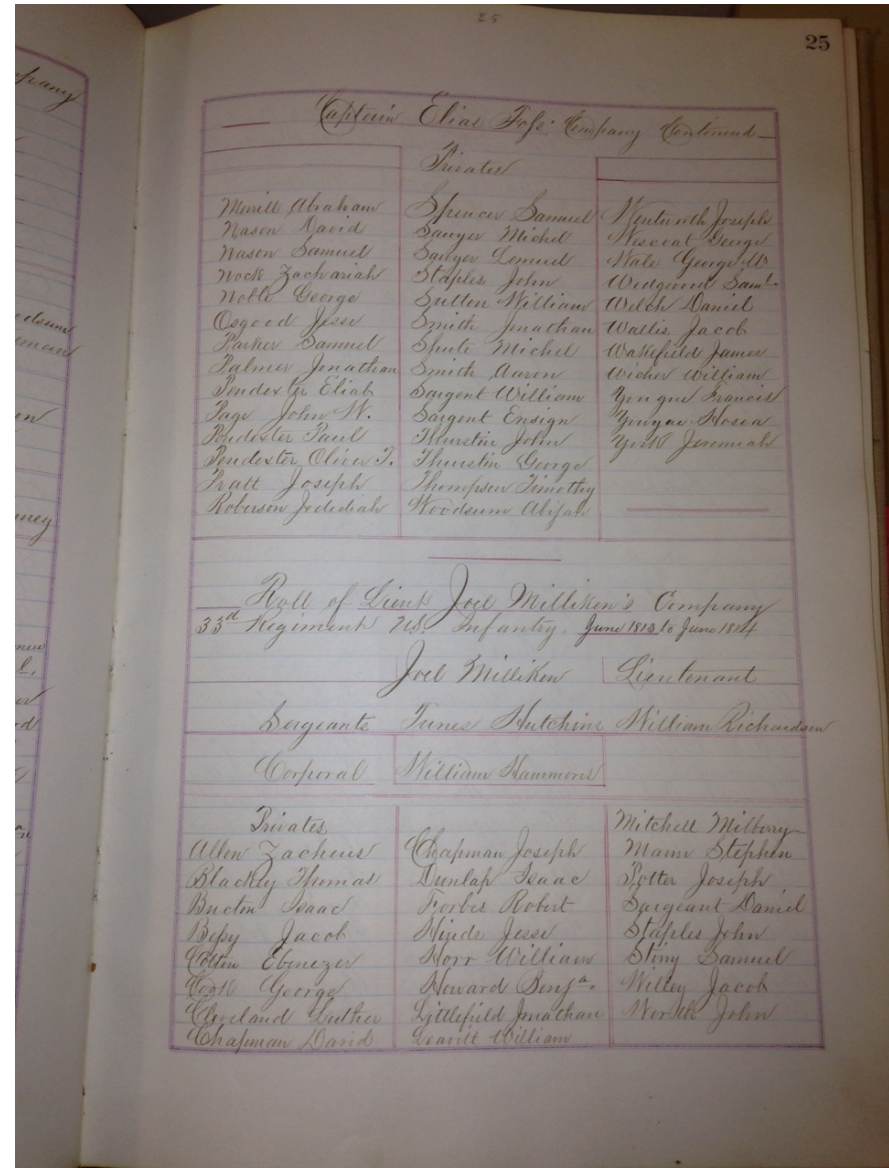 25
25
Captain Elias Foss' Company Continued
Privates
Merrill Abraham
Nason David
Nason Samuel
Nock Zachariah
Noble George
Osgood Jesse
Parker Samuel
Palmer Jonathan
Pendexter Eliab
Page John W.
Pendexter Paul
Pendexter Oliver T.
Pratt Joseph
Roberson Jedidiah
Spencer Samuel
Sawyer Michel
Sawyer Lemuel
Staples John
Sutton William
Smith Jonathan
Shute Michel
Smith Aaron
Sargent William
Sargent Ensign
Thurstin John
Thurstin George
Thompson Timothy
Woodsum Abijah
Wentworth Joseph
Wescoat George
Wale George W
Wedgwood Saml.
Welch Daniel
Wallis Jacob
Wakefield James
Wicher William
Yongue Francis
Yongue Hosea
York Jeremiah
Roll of Lieut Joel Milliken's Company
33d Regiment U.S. Infantry. June 1813 to June 1814
Joel Milliken Lieutenant
Sergeants Hutchins William Richardson
Corporal William Hammons
Privates
Allen Zacheus
Blackey Thomas
Bucton Isaac
Bessy Jacob
Cotton Ebenezer
Cook George
Cleveland Luther
Chapman David
Chapman Joseph
Dunlap Isaac
Forbes Robert
Hinds Jesse
Horr William
Howard Benja.
Littlefield Jonathan
Leavitt William
Mitchell Milbery
Mann Stephen
Potter Joseph
Sargeant Daniel
Staples John
Stiny Samuel
Willey Jacob
Worth John